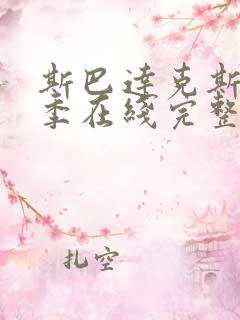 斯巴达克斯
季在线完整
扎空